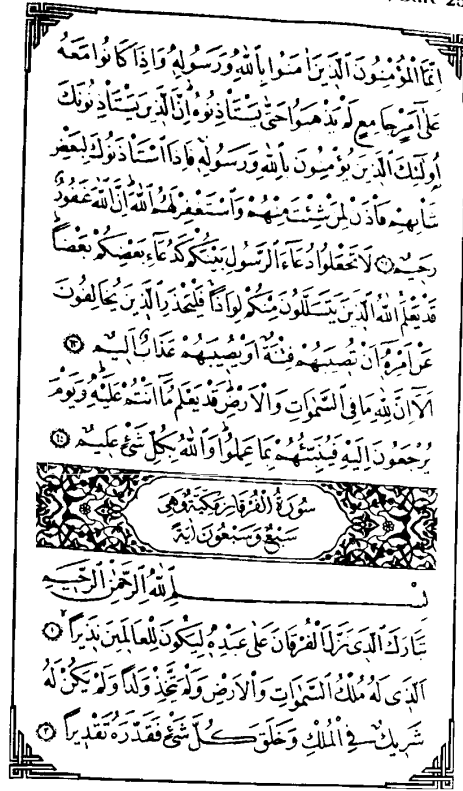 اِنَّمَا الْمُؤْمِنُونَ الَّذ۪ينَ اٰمَنُوا بِاللّٰهِ وَرَسُولِه۪ وَاِذَا كَانُوا مَعَهُ
عَلٰٓى اَمْرٍ جَامِعٍ لَمْ يَذْهَبُوا حَتّٰى يَسْتَأْذِنُوهُ اِنَّ الَّذ۪ينَ يَسْتَأْذِنُونَكَ
اُو۬لٰٓئِكَ الَّذ۪ينَ يُؤْمِنُونَ بِاللّٰهِ وَرَسُولِه۪ فَاِذَا اسْتَأْذَنُوكَ لِبَعْضِ
شَأْنِهِمْ فَأْذَنْ لِمَنْ شِئْتَ مِنْهُمْ وَاسْتَغْفِرْ لَهُمُ اللّٰهَ اِنَّ اللّٰهَ غَفُورٌ
رَح۪يمٌ لَا تَجْعَلُوا دُعَٓاءَ الرَّسُولِ بَيْنَكُمْ كَدُعَٓاءِ بَعْضِكُمْ بَعْضاً
قَدْ يَعْلَمُ اللّٰهُ الَّذ۪ينَ يَتَسَلَّلُونَ مِنْكُمْ لِوَاذاً فَلْيَحْذَرِ الَّذ۪ينَ يُخَالِفُونَ
عَنْ اَمْرِه۪ٓ اَنْ تُص۪يبَهُمْ فِتْنَةٌ اَوْ يُص۪يبَهُمْ عَذَابٌ اَل۪يمٌ ٦٣
اَلَٓا اِنَّ لِلّٰهِ مَا فِي السَّمٰوَاتِ وَالْاَرْضِ قَدْ يَعْلَمُ مَٓا اَنْتُمْ عَلَيْهِ وَيَوْمَ
يُرْجَعُونَ اِلَيْهِ فَيُنَبِّئُهُمْ بِمَا عَمِلُوا وَاللّٰهُ بِكُلِّ شَيْءٍ عَل۪يمٌ
سُورَةُ الْفُرْقَانِ مَكِّيَّةٌ وَهِيَ
سَبْعٌ وَسَبْعُونَ اٰيَةً
بِسْمِ اللّٰهِ الرَّحْمٰنِ الرَّح۪يمِ
تَبَارَكَ الَّذ۪ي نَزَّلَ الْفُرْقَانَ عَلٰى عَبْدِه۪ لِيَكُونَ لِلْعَالَم۪ينَ نَذ۪يراً ١
اَلَّذ۪ي لَهُ مُلْكُ السَّمٰوَاتِ وَالْاَرْضِ وَلَمْ يَتَّخِذْ وَلَداً وَلَمْ يَكُنْ لَهُ
شَر۪يكٌ فِي الْمُلْكِ وَخَلَقَ كُلَّ شَيْءٍ فَقَدَّرَهُ تَقْد۪يراً ٢